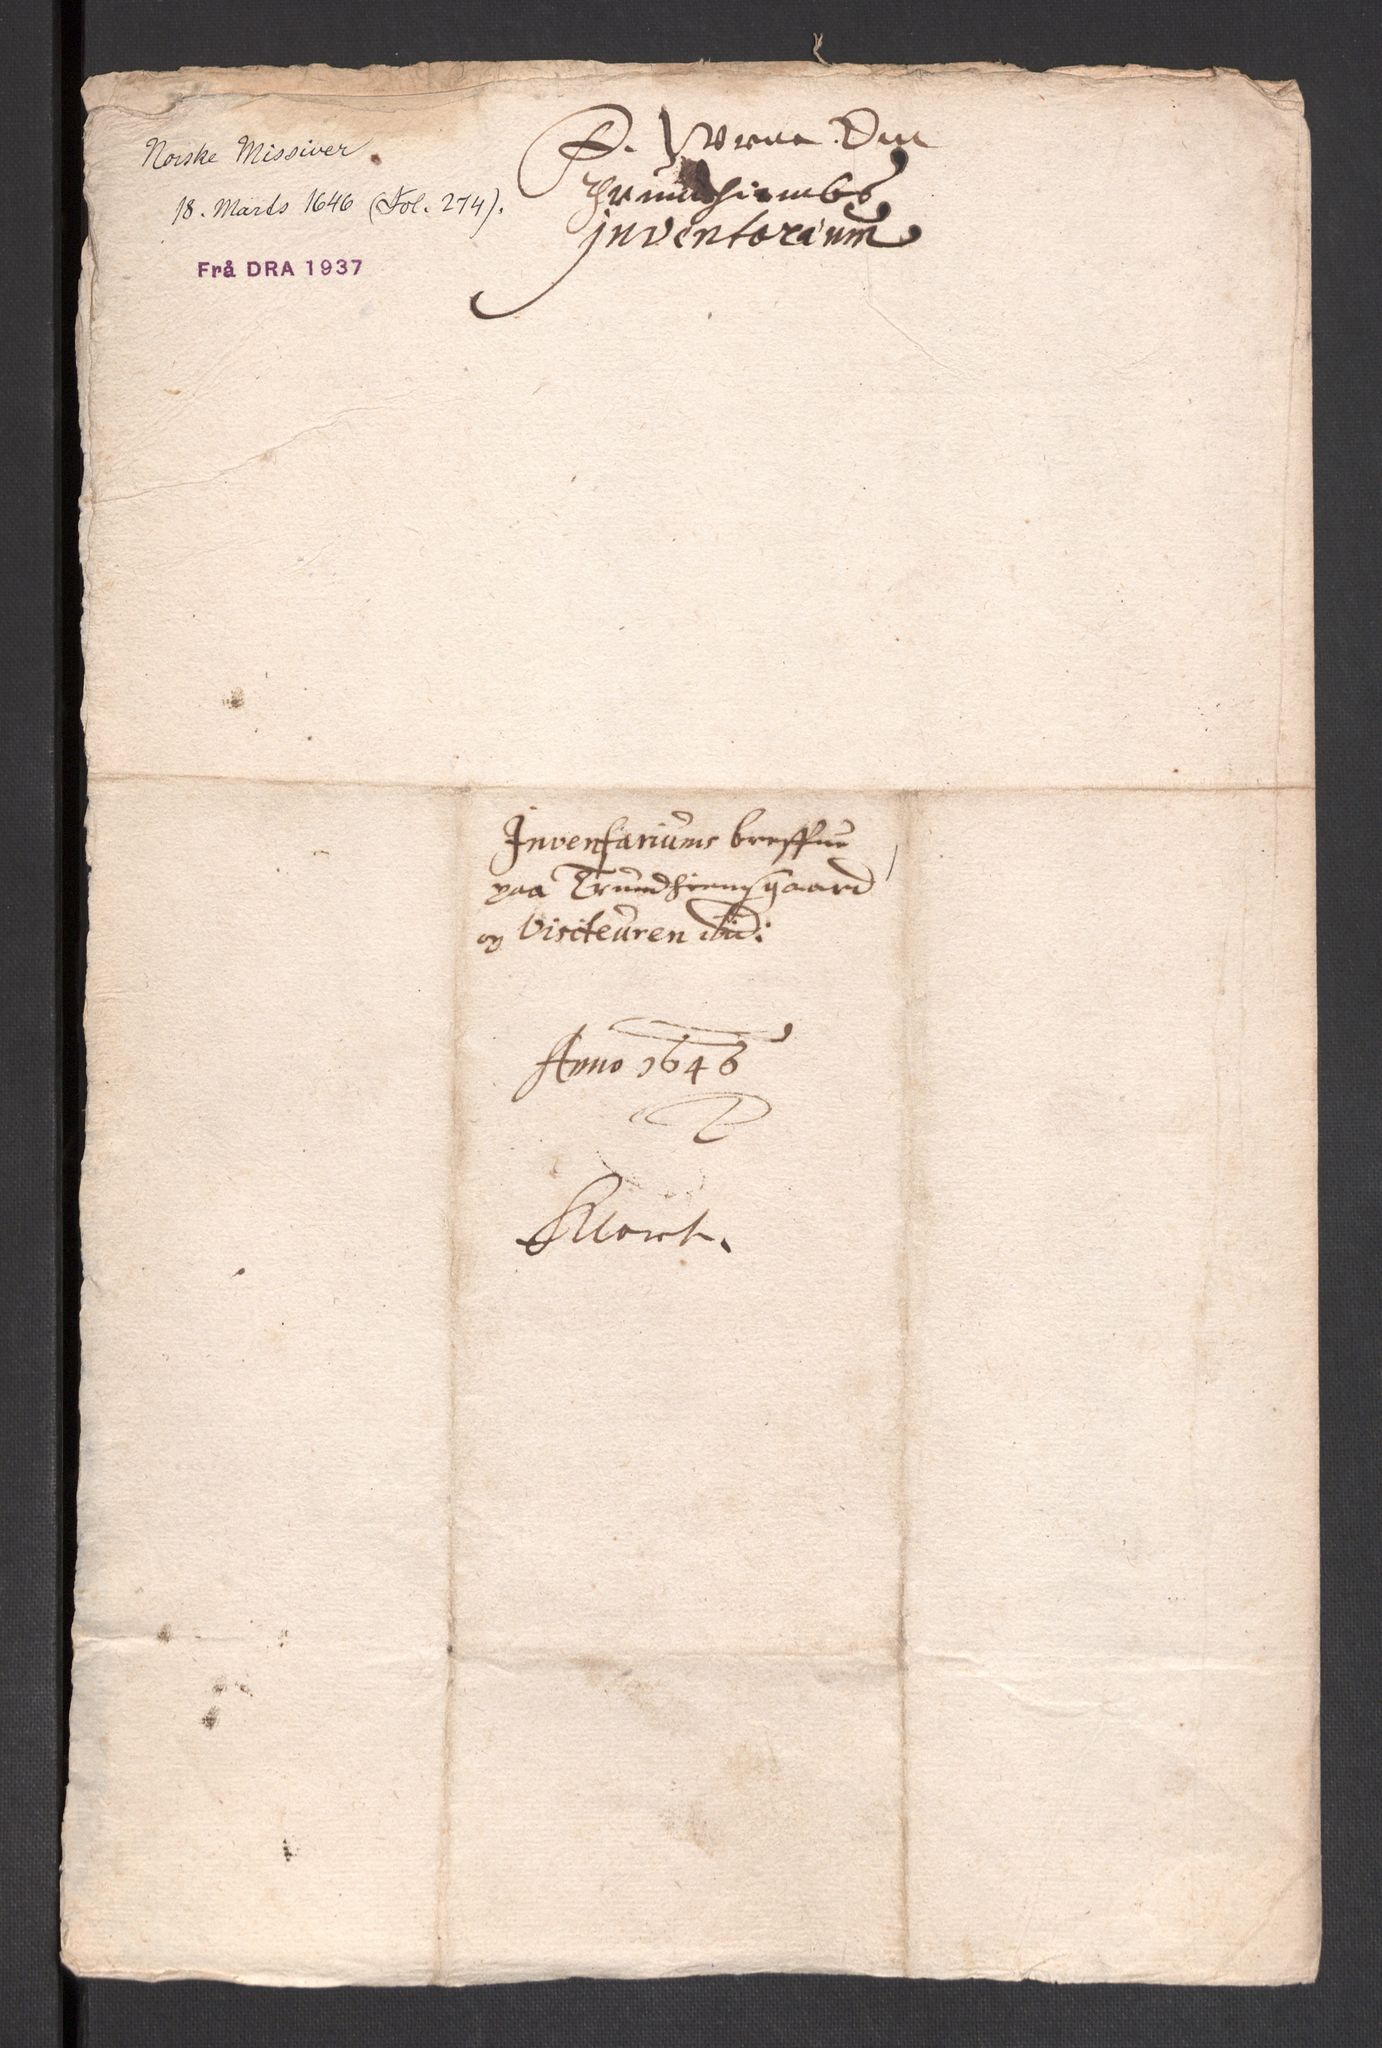 Norske Missiver
18. Marts 1646 (Fol. 274).
Frå DRA 1937
Thrundhiembs
jnventorium
Inventariums breffue
paa Trundhiemsgaard
og Visiteuren ibid:
Anno 1646